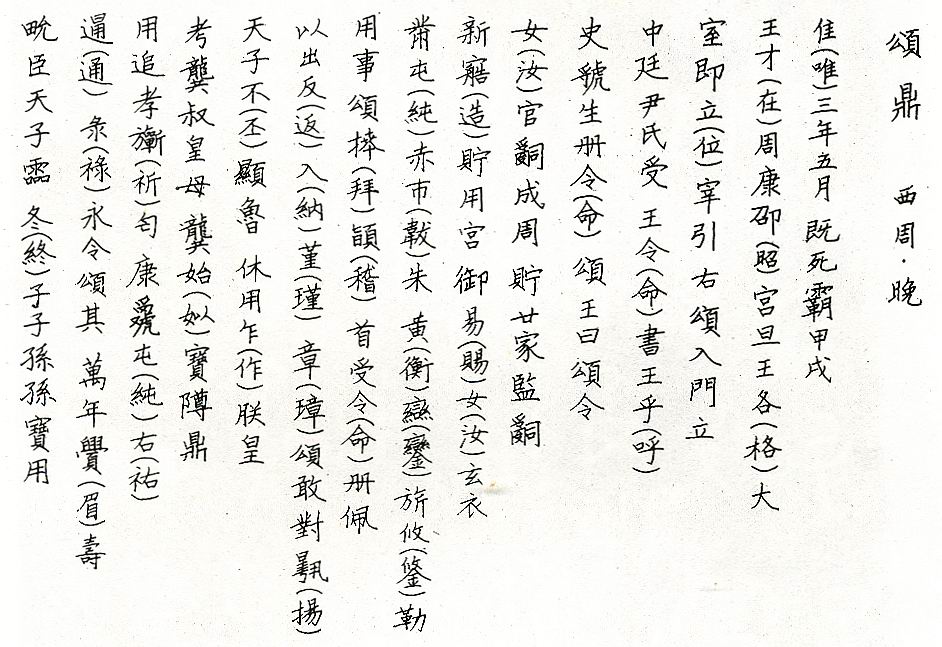 頌鼎 西周·晚
隹(唯)三年五月既死霸甲戌
王才(在)周康卲(照)宮旦王各(格)大
室即立(位)宰引右頌入門立
中廷尹氏受王令(命)書王乎(呼)
史虢生册令(命)頌王曰頌令
女(汝)官𤔲成周貯廿家監𤔲
新寤(造)貯用宮御易(賜)女(汝)玄衣
黹屯(純)赤巿(韍)朱黃(衡)䜌(鑾)旂攸(鋚)勒
用事頌𢱭(拜)𩒨(稽)首受令(命)册佩
以出反(返)入(納)堇(瑾)章(璋)頌敢對𩛥(揚)
天子不(丕)顯魯休用乍(作)朕皇
考龔叔皇母龔始(姒)寶䵼鼎
用追孝𣄨(祈)匄康𩁹屯(純)右(祐)
逼(通)彔(祿)永令頌其萬年釁(眉)壽
畯臣天子霝冬(終)子子孫孫寶用